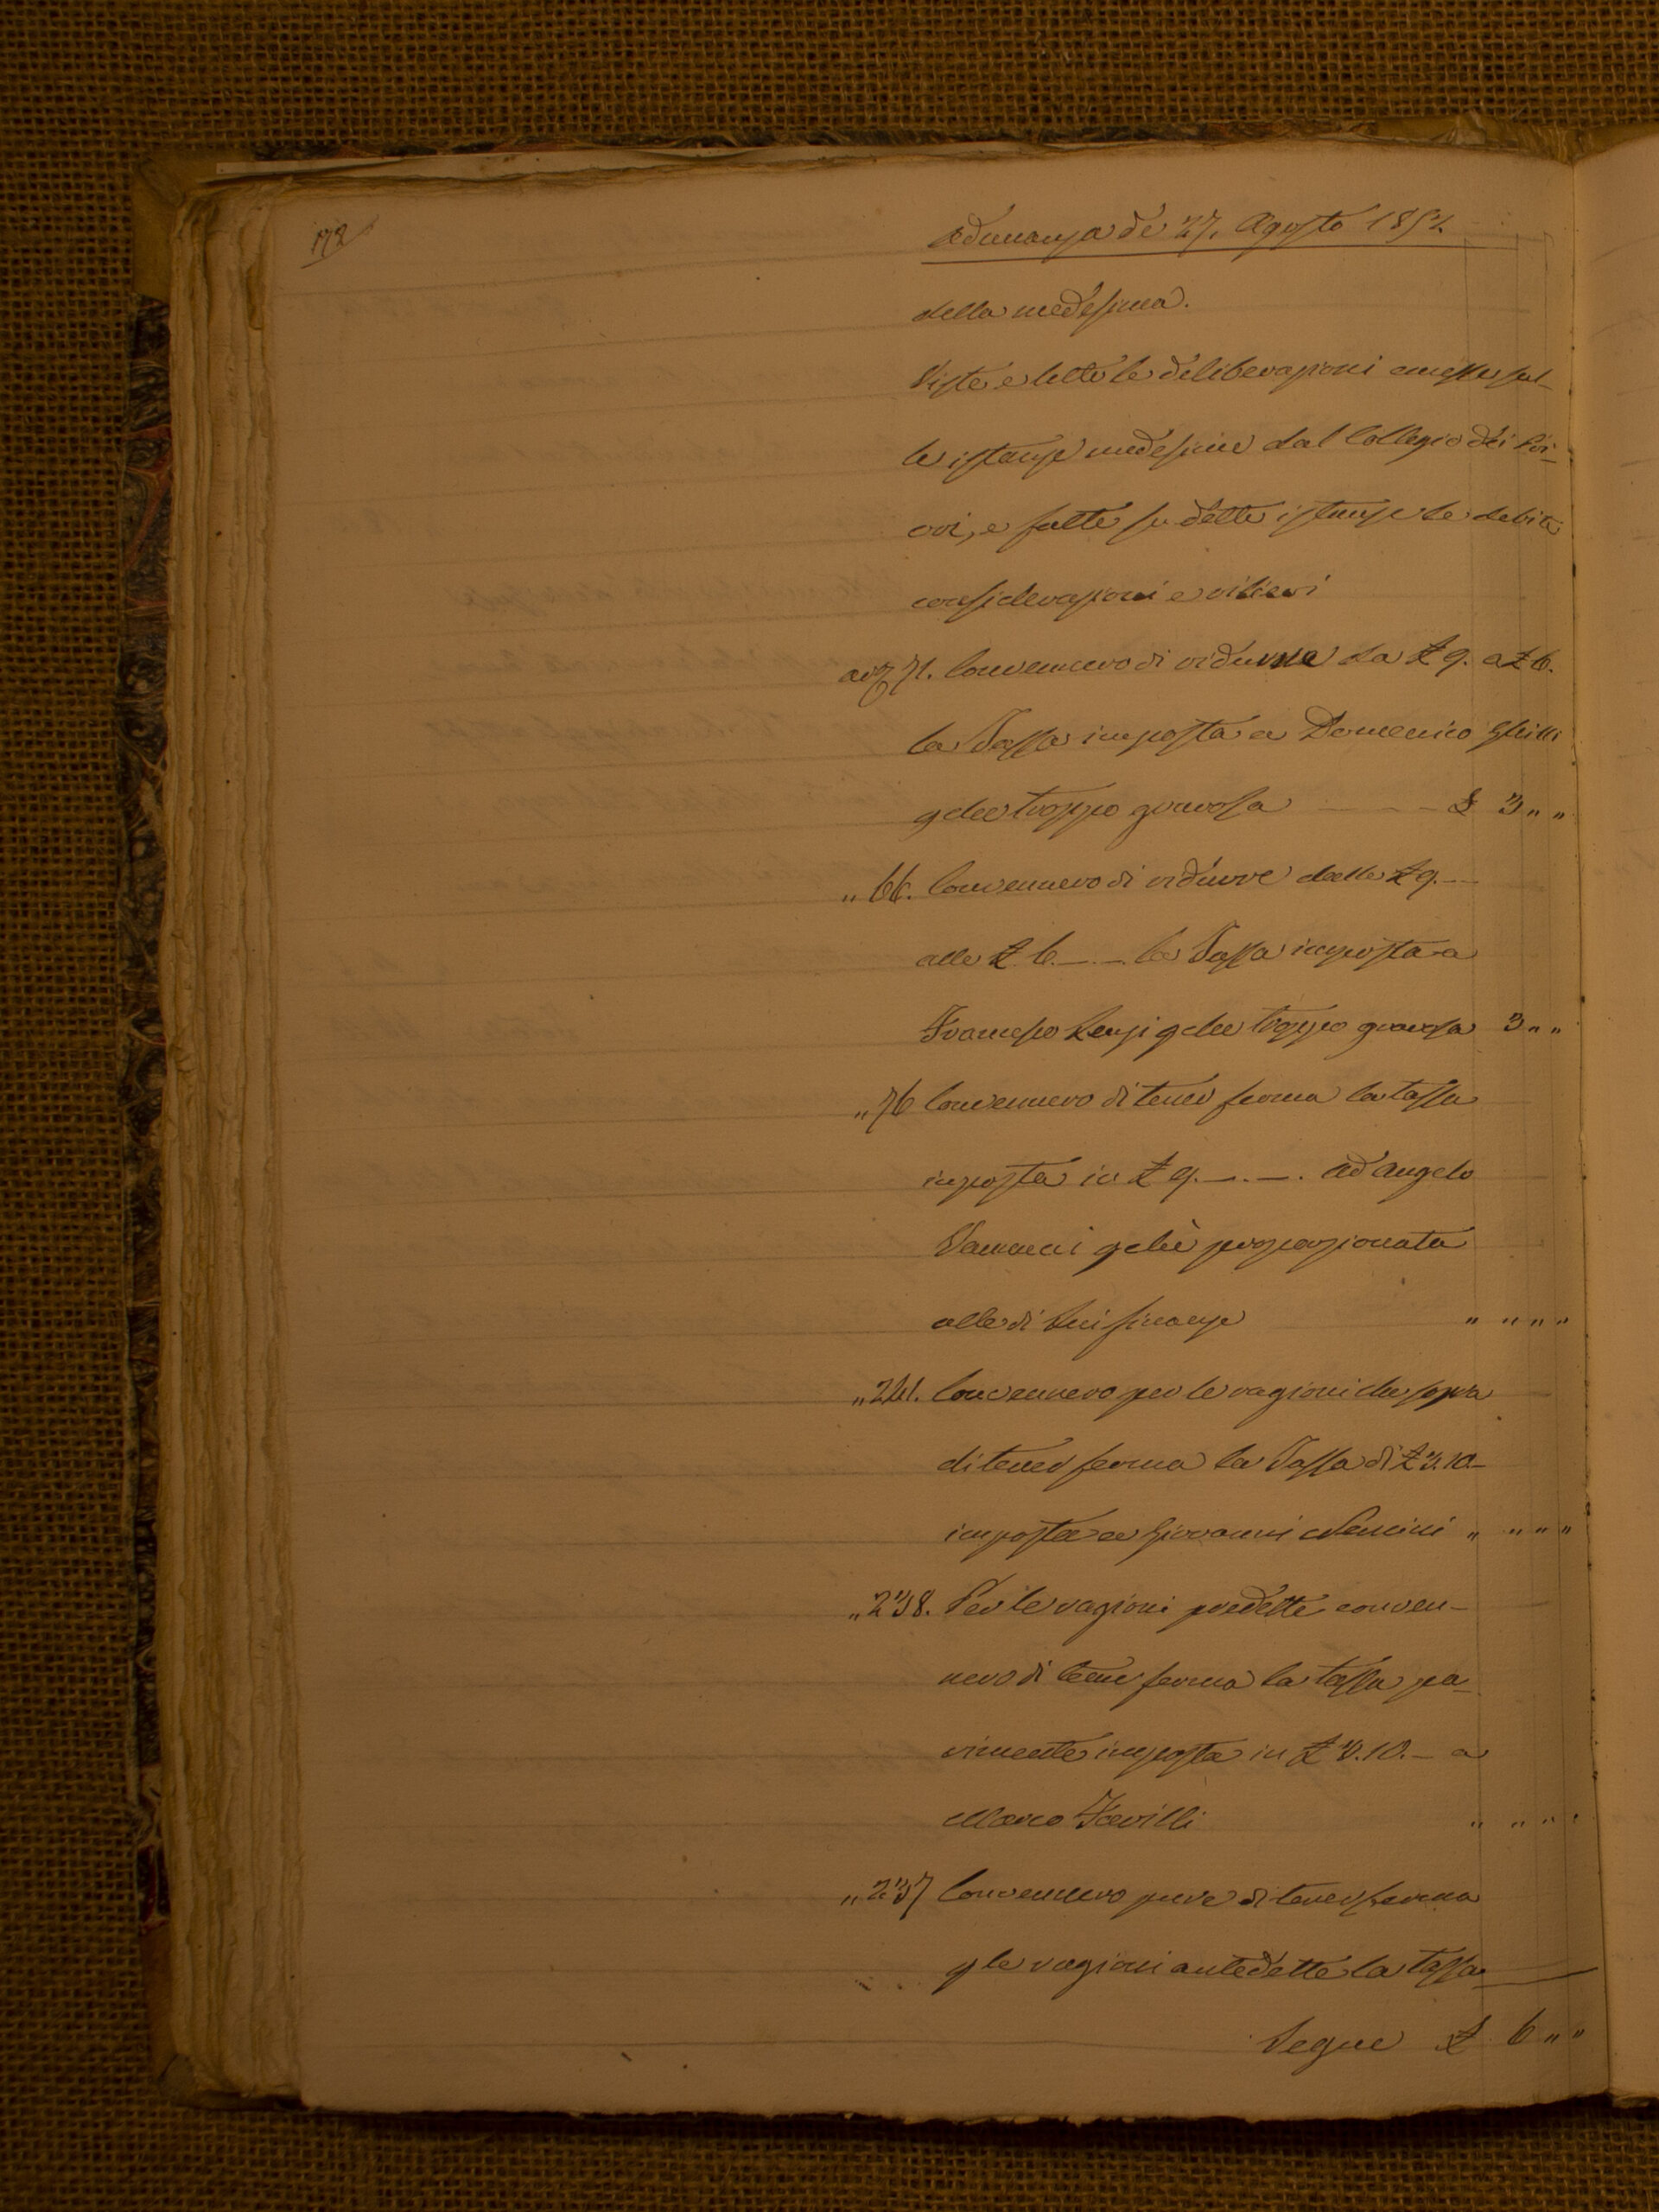 172
Adunanza de 27. Agosto 1852.
della medesima.
Viste e lette le deliberazioni emesse sul-
le istanze medesime dal Collegio dei Pri-
ori, e fatte su dette istanze le debite
considerazioni e rilievi
71. Convennero di ridurre da £ 9. a £ 6.
la Tassa imposta a Domenico Ghilli
p che troppo gravosa £ 3 " "
" 66. Convennero di ridurre dalle £ 9.—
alle £ 6.—.— la Tassa imposta a
Francesco Lenzi p che troppo gravosa 3 " "
" 76 Convennero di tener ferma la tassa
imposta in £ 9.—.—. ad Angelo
Vannini p chè proporzionata
alle di lui finanze " " " "
" 241. Convennero per le ragioni che sopra
di tener ferma la Tassa di £ 3.10.—
imposta a Giovanni Nannini " " " "
" 238. Per le ragioni predette conven-
nero di tener ferma la tassa pa-
rimente imposta in £ 3.10.— a
Marco Favilli " " " "
" 237 Convennero pure di tener ferma
p le ragioni antedette la tassa
Segue £ 6 " "